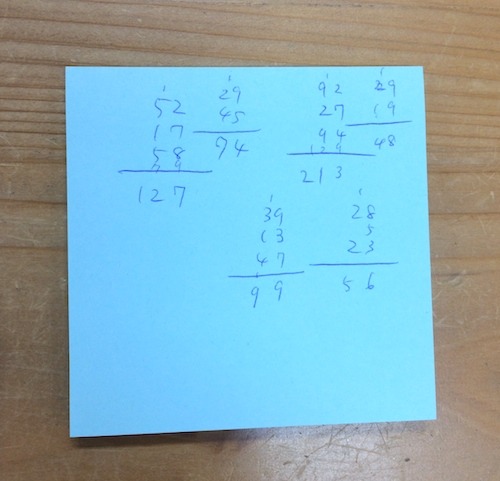 1
52
17
58
127
1
29
45
74
92
27
94
213
1
29
19
48
1
39
13
47
99
1
28
5
23
56